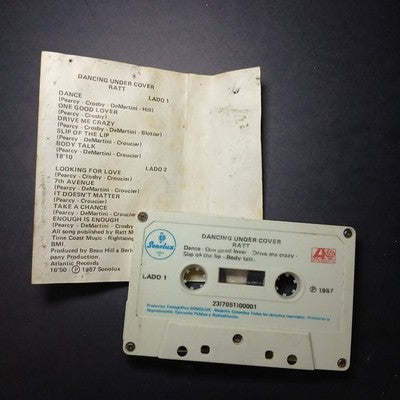 DANCING UNDER COVER
RATT
DANCE LADO 1
(Pearcy - Crosby - DeMartini - Hill)
ONE GOOD LOVER
(Pearcy - Crosby)
DRIVE ME CRAZY
(Pearcy - Crosby - DeMartini - Blotzer)
SLIP OF THE LIP
(Pearcy - DeMartini - Croucier)
BODY TALK
(Pearcy - DeMartini - Croucier)
18'10
LOOKING FOR LOVE LADO 2
(Pearcy - DeMartini - Croucier)
7th AVENUE
(Pearcy - DeMartini - Croucier)
IT DOESN'T MATTER
(Pearcy - Crosby - Croucier)
TAKE A CHANCE
(Pearcy - DeMartini - Croucier)
ENOUGH IS ENOUGH
(Pearcy - DeMartini - Croucier)
All song published by Ratt M
Time Coast Music - Rightsong
BMI.
Produced by Beau Hill a Berl
pany Production.
Atlantic Records
16'50 Ⓟ 1987 Sonolux
Sonolux
DANCING UNDER COVER
RATT
Dance - One good lover - Drive me crazy -
Slip of the lip - Body talk.
LADO 1
Ⓟ 1987
23(7061)00001
Productor Fonográfico SONOLUX - Medellín Colombia Todos los derechos reservados. Prohibida la
Reproducción, Ejecución Pública y Radiodifusión.